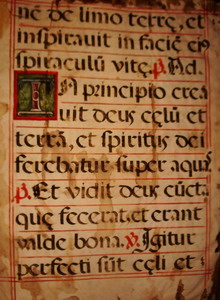 nẽ de limo terrę, et
inspirauit in facię ei9
spiraculũ vitę. ℟. Ad.
IN principio crea
uit deus cęlũ et
terrã, et spiritus dei
ferebatur super aquã
℟. Et vidit deus cũcta
quę fecerat, et erant
valde bona. ℣. Igitur
perfecti sũt cęli et